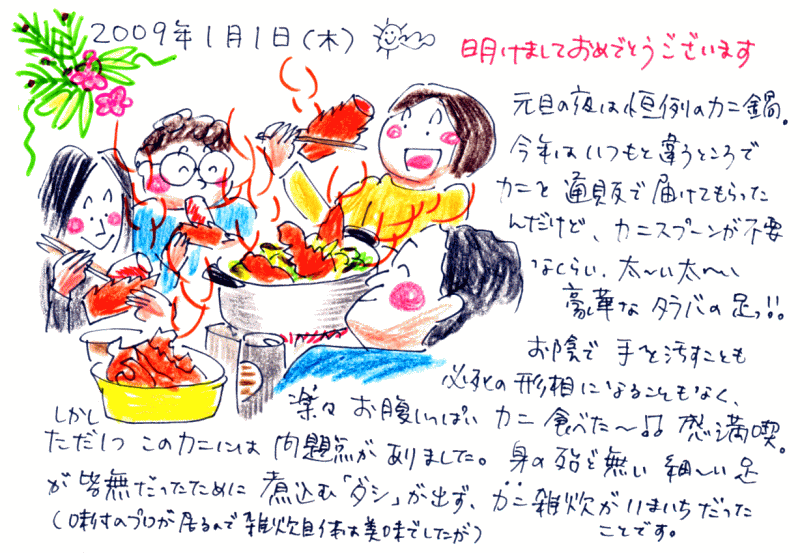 2009年1月1日(木)
明けましておめでとうございます
元旦の夜は恒例のカニ鍋。
今年はいつもと違うところで
カニを通販で届けてもらった
んだけど、カニスプーンが不要
なくらい、太〜い太〜い
豪華なタラバの足っ!!
お陰で手を汚すことも
必死の形相になることもなく、
楽々お腹いっぱいカニ食べた〜 感満喫。
しかし
ただし1つこのカニには問題点がありました。身の殆ど無い細〜い足
が皆無だったために煮込む「ダシ」が出ず、カニ雑炊がいまいちだった
ことです。
(味付のプロが居るので雑炊自体は美味でしたが)